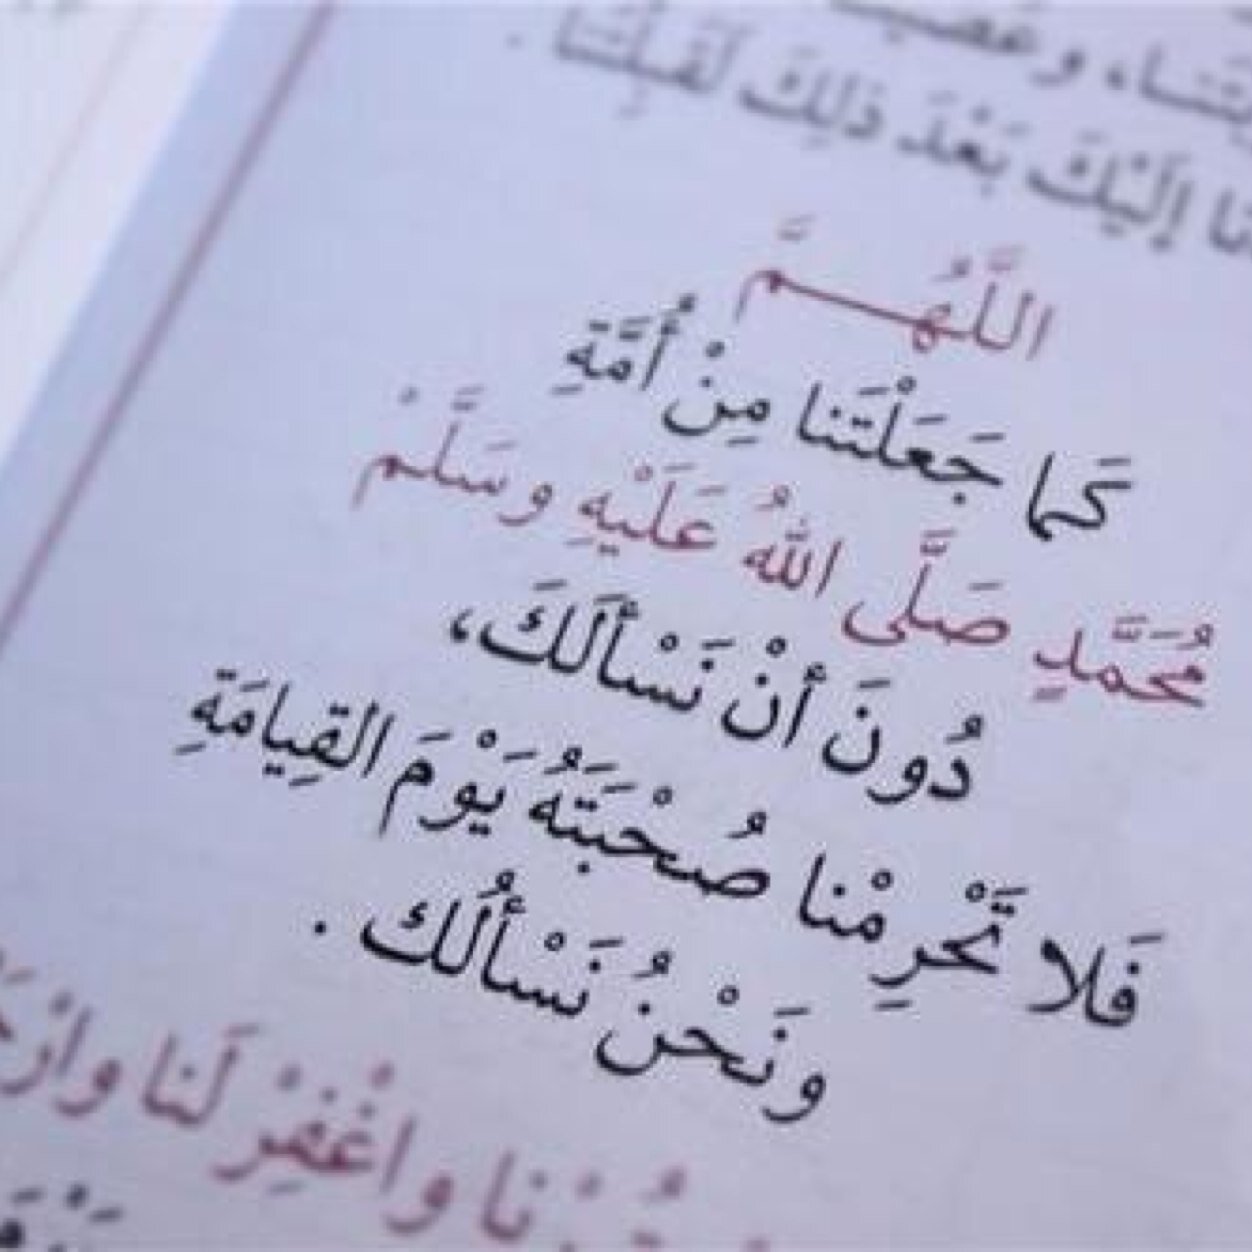 إلَيْكَ بَعْدَ ذلِكَ لَقَبِلْتَنا .
اللَّهُمَّ
كَما جَعَلْتَنا مِنْ أُمَّةِ
مُحَمَّدٍ صَلَّى اللهُ عَلَيْهِ وسَلَّمْ
دُونَ أنْ نَسْألَكَ،
فَلا تَحْرِمْنا صُحْبَتَهُ يَوْمَ القِيامَةِ
ونَحْنُ نَسْألُك .
واغْفِرْ لَنا